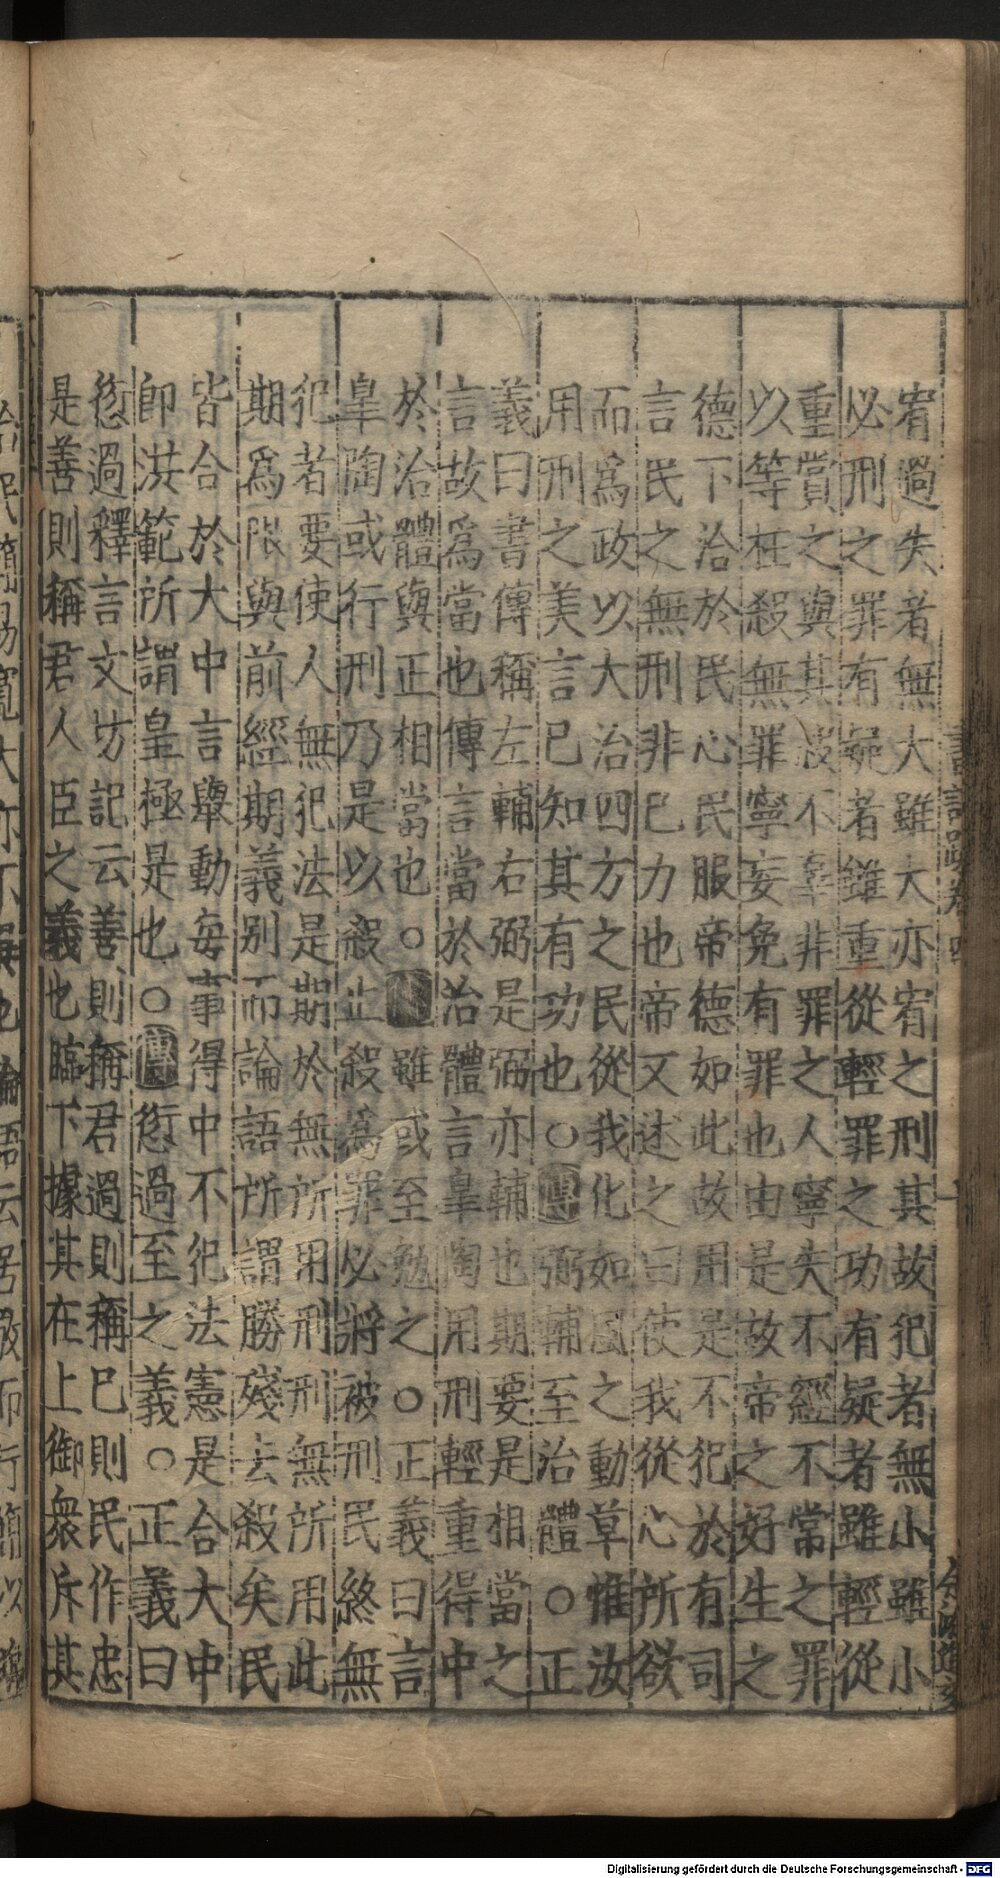 宥過失者無大雖大亦宥之刑其故犯者無小雖小
必刑之罪有疑者雖重從輕罪之功有疑者雖輕從
重賞之與其殺不辜非罪之人寧失不經不常之罪
以等枉殺無罪寧妄免有罪也由是故帝之好生之
德下洽於民心民服帝德如此故用是不犯於有司
言民之無刑非已力也帝又述之曰使我從心所欲
而爲政以大治四方之民從我化如風之動草惟汝
用刑之美言已知其有功也○傳弼輔至治體○正
義曰書傳稱左輔右弼是弼亦輔也期要是相當之
言故爲當也傳言當於治體言皐陶用刑輕重得中
於治體與正相當也○傳雖或至勉之○正義曰言
皐陶或行刑乃是以殺止殺爲罪必將被刑民終無
犯者要使人無犯法是期於無所用刑刑無所用此
期爲限與前經期義別而論語所謂勝殘去殺矣民
皆合於大中言舉動每事得中不犯法憲是合大中
即洪範所謂皇極是也○傳愆過至之義○正義曰
愆過釋言文坊記云善則稱君過則稱已則民作忠
是善則稱君人臣之義也臨下據其在上御衆斥其